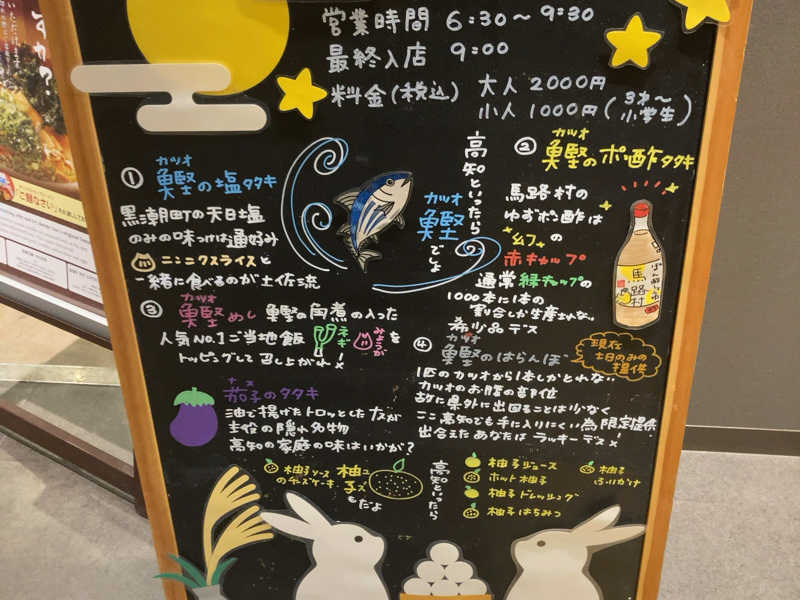 営業時間 6:30〜9:30
最終入店 9:00
料金(税込) 大人 2000円
小人 1000円(3才〜小学生)
高知といったら
カツオ
鰹でしょ
① カツオ
鰹の塩タタキ
黒潮町の天日塩
のみの味つけは通好み
ニンニクスライスと
一緒に食べるのが土佐流
② カツオ
鰹のポン酢タタキ
馬路村の
ゆずポン酢は
幻の
赤キャップ
通常緑キャップの
1000本に1本の
割合しか生産されない
希少品デス
ぽん酢しょうゆ
馬路村
③ カツオ
鰹めし 鰹の角煮の入った
人気No.1ご当地飯 ネギ みょうがを
トッピングして召し上がれ!
④ カツオ
鰹のはらんぼ
現在
土日のみの
提供
1匹のカツオから1本しかとれない
カツオのお腹の部位
故に県外に出回ることは少なく
ここ高知でも手に入りにくい為限定提供
出会えたあなたはラッキーデス!
ナス
茄子のタタキ
油で揚げたトロッとしたナスが
主役の隠れ名物
高知の家庭の味はいかが?
高知といったら
柚子
ユズ
もだよ
柚子ソース
のチーズケーキ
柚子ジュース
ホット柚子
柚子ドレッシング
柚子はちみつ
柚子
ふりかけ
すか?
ご麺なさい